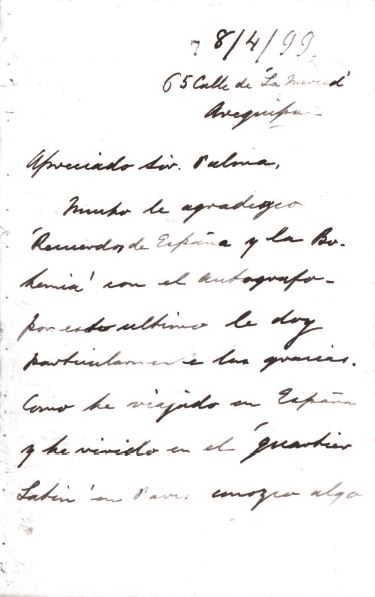 8/4/99.
65 Calle de 'La Merced'
Arequipa -
Apreciado Sor. Palma,
Mucho le agradezco
'Recuerdos de España y la Bo-
hemia' con el autografo -
por esto ultimo le doy
particularmente las gracias.
Como he viajado en España
y he vivido en el 'quartier
Latin' en Paris conozco algo